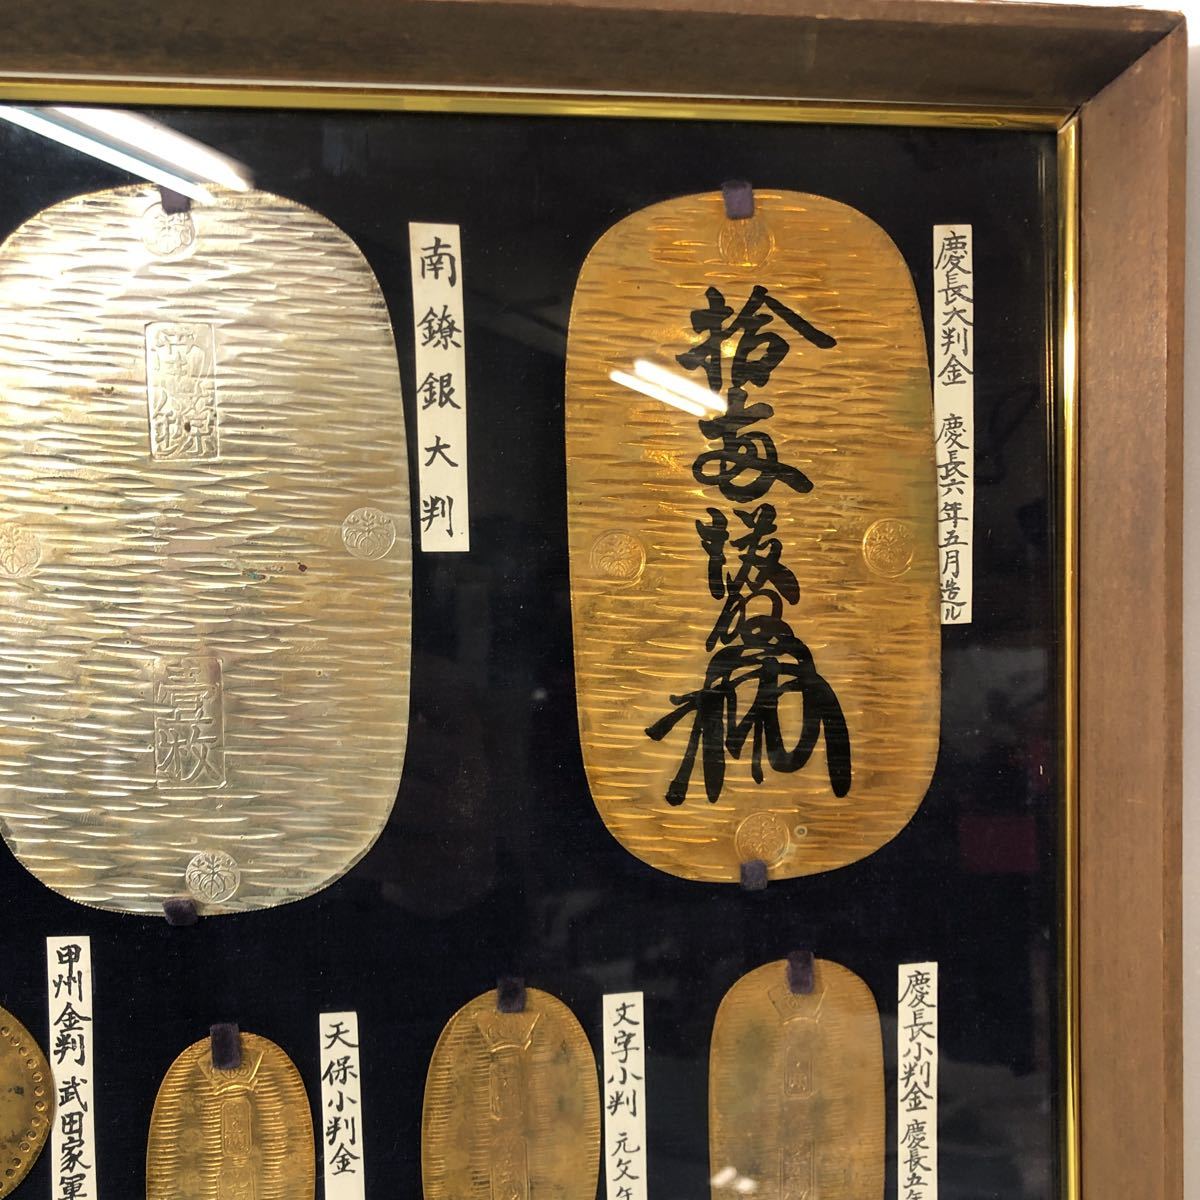 慶長大判金 慶長六年五月造ル
拾両後藤
南鐐銀大判
南鐐
壹枚
慶長小判金 慶長五年
文字小判 元文年
天保小判金
甲州金判 武田家軍